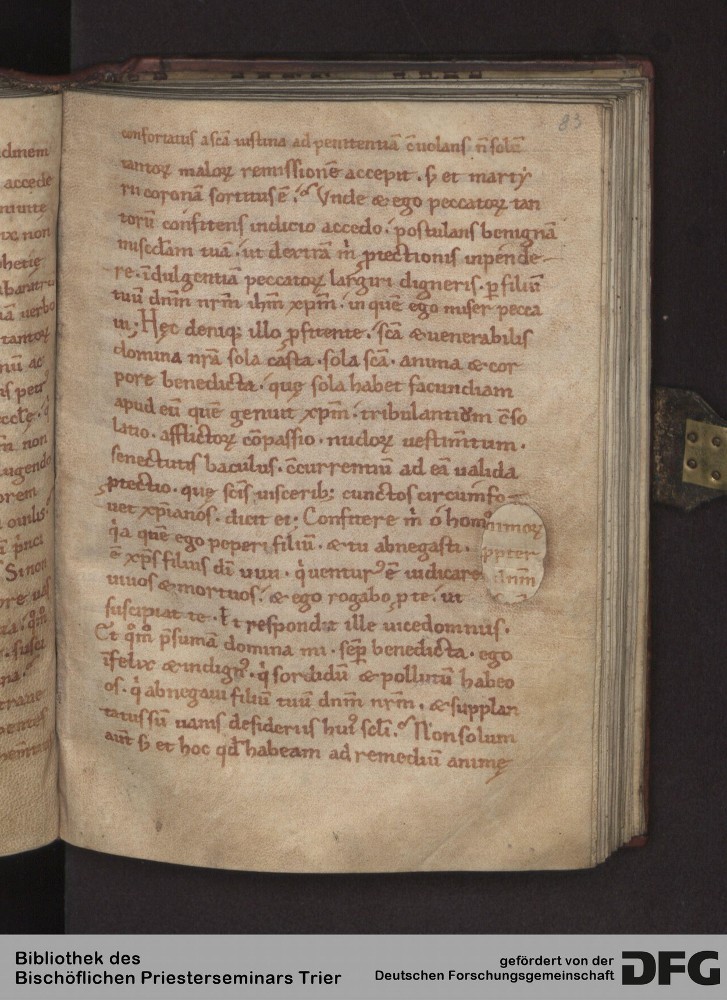 83
confortatus a sc̄a iustina ad penitentiā c̄uolans n̄ solū
tantoꝝ maloꝝ remissionē accepit . sꝫ et marty
rii coronā sortitus ē . Vnde & ego peccatoꝝ tan
torū confitens indicio accedo . postulans benignā
misc̄dam tuā . ut dextrā m̄ ꝓtectionis inpende
re . īdulgentiā peccatoꝝ largiri digneris . ꝑ filiū
tuū dnm̄ nrm̄ ihm̄ xpm̄ . in quē ego miser pecca
ui; Hęc deniqꝫ illo ꝓfitente . sc̄a & uenerabilis
domina nrā sola casta . sola sc̄a . anima & cor
pore benedicta . quę sola habet facundiam
apud eū quē genuit xpm̄ . tribulantium c̄so
latio . afflictoꝝ cōpassio . nudoꝝ uestimtum .
senectutis baculus . c̄currentiū ad eā ualida
ꝓtectio . quę sc̄is uisceribꝫ cunctos circumfo
uet xp̄ianos . dicit ei . Confitere m̄ ó homo
q̇a quē ego peperi filiū . & tu abnegasti .
ē xp̄s filius dī uiui . q̇ uenturꝰ ē iudicare
uiuos & mortuos . & ego rogabo ꝓ te . ut
suscipiat te . Et respondit ille uicedominus .
Et qm̊ p̄sumā domina mi . semꝑ benedicta . ego
īfelix & indignꝰ . q̇ sordidū & pollutū habeo
os . q̇ abnegaui filiū tuū dnm̄ nrm̄ . & supplan
tatus sū uanis desideriis huiꝰ scl̄i . Non solum
aūt sꝫ et hoc qd̄ habeam ad remediū animę
nimoꝝ
ppter
dnm̄
dinem
accede
non
uerbo
tantoꝝ
non
Si non
Bibliothek des
Bischöflichen Priesterseminars Trier
gefördert von der
Deutschen Forschungsgemeinschaft
DFG